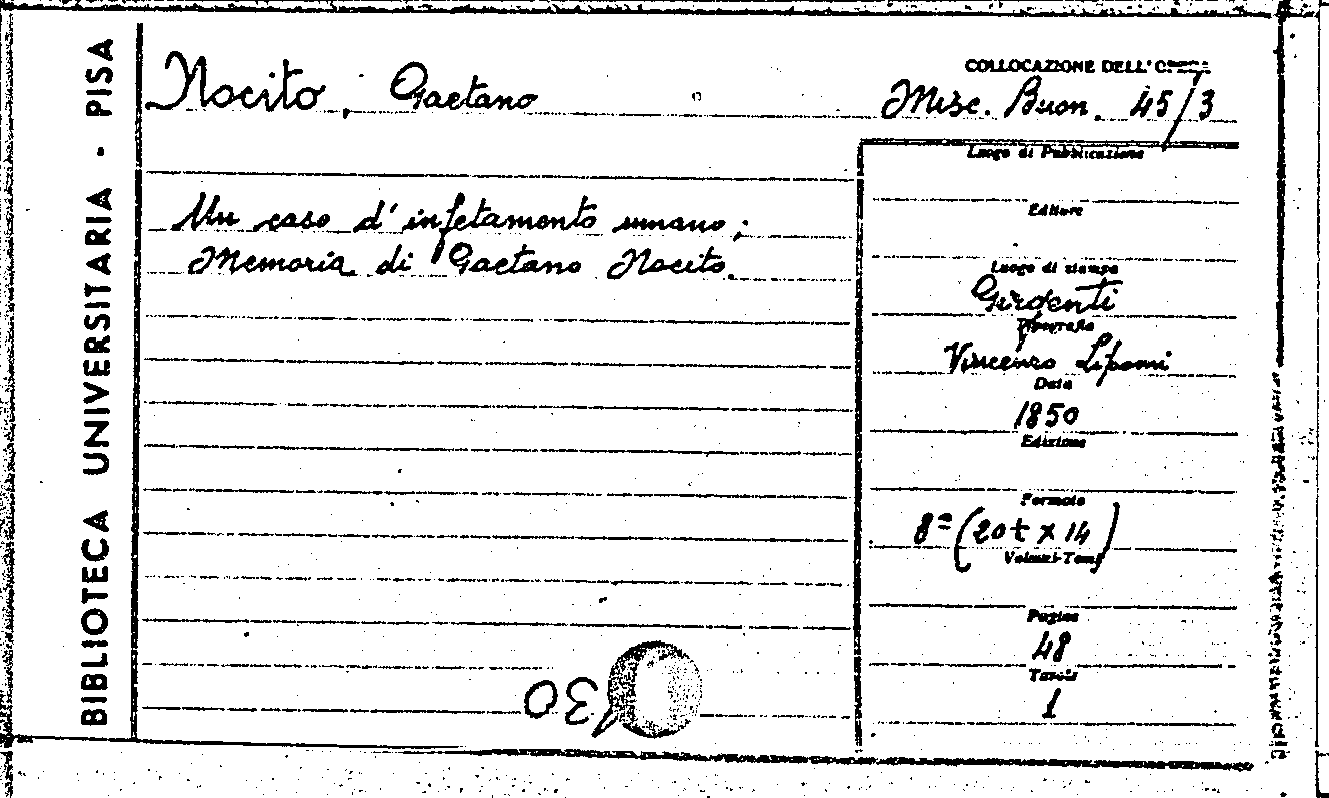 BIBLIOTECA UNIVERSITARIA - PISA
Nocito, Gaetano
COLLOCAZIONE DELL'OPERA
Misc. Buon. 45/3
Un caso d'infetamento umano;
Memoria di Gaetano Nocito.
Luogo di Pubblicazione
Editore
Luogo di stampa
Girgenti
Tipografia
Vincenzo Lipomi
Data
1850
Edizione
Formato
8º (20t x 14)
Volumi-Tomi
Pagine
48
Tavole
1